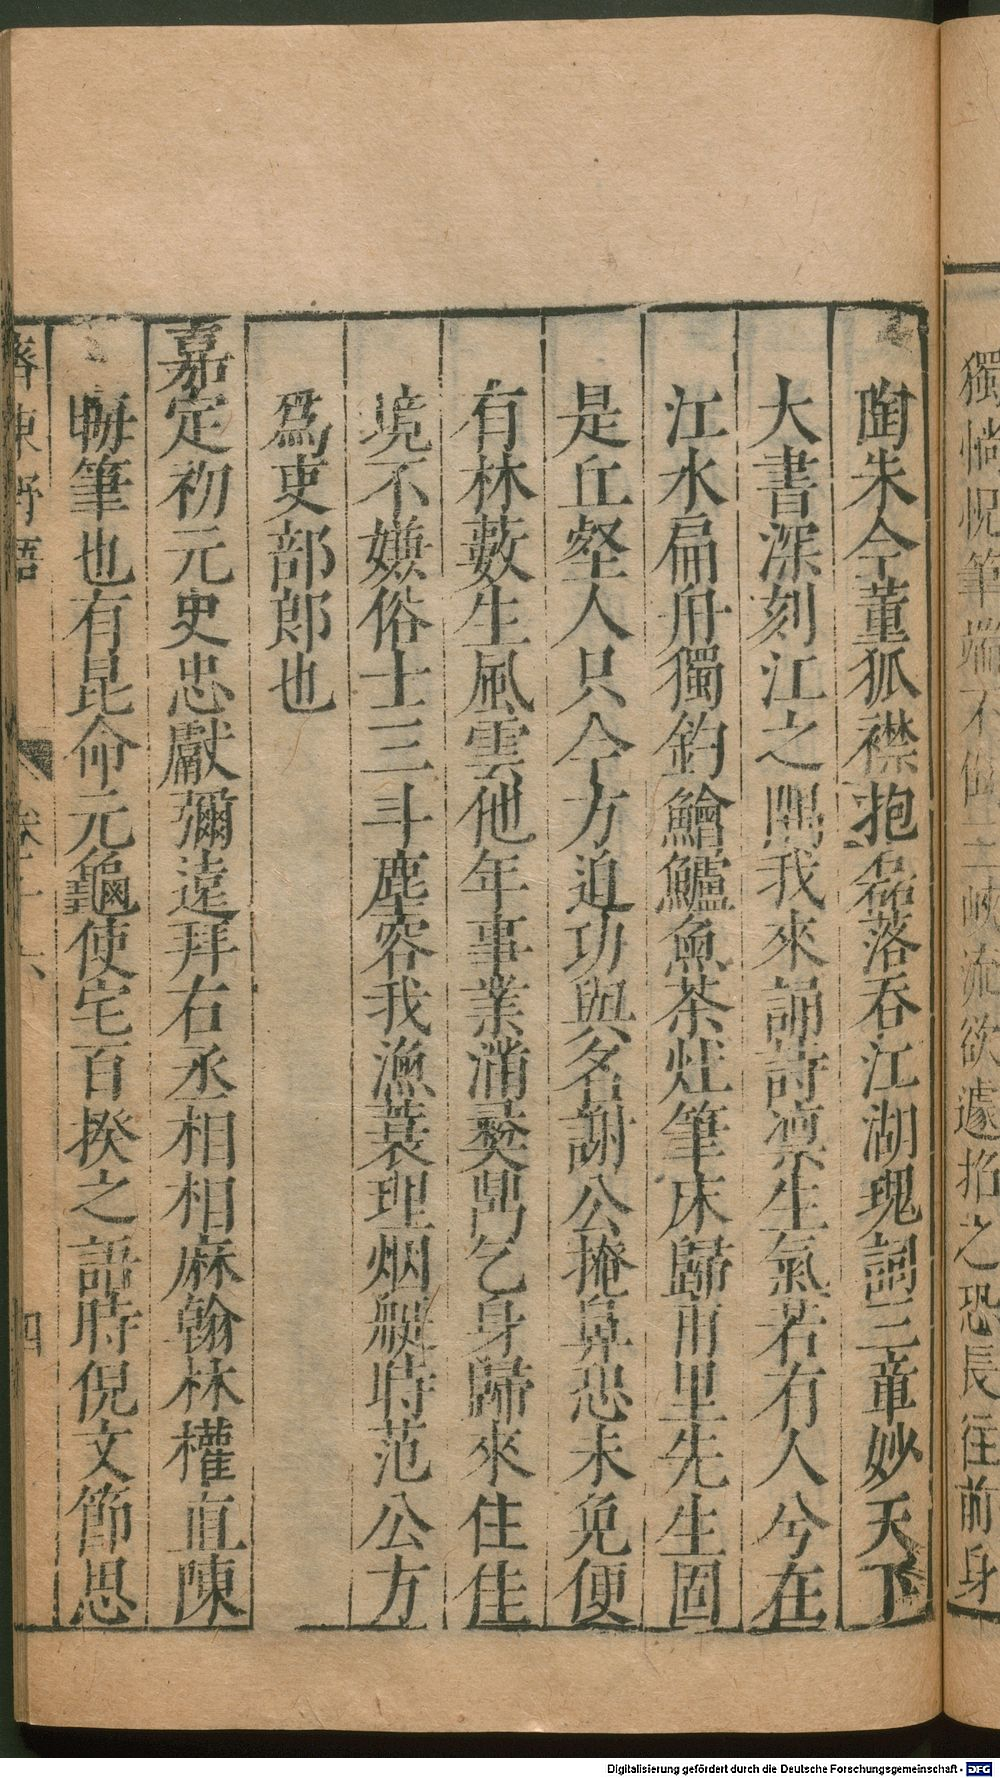 獨惝怳筆端不倒三峽流欲遽招之恐長往前身
陶朱今董狐襟抱磊落吞江湖瑰詞三章妙天下
大書深刻江之隅我來誦詩凛生氣若有人兮在
江水扁舟獨釣鱠鱸魚茶灶筆床歸甫里先生固
是丘壑人只今方迫功與名謝公掩鼻恐未免便
有林藪生風雲他年事業滿彛鼎乞身歸來住佳
境不嫌俗士三斗塵容我漁蓑理烟艇時范公方
爲吏部郎也
嘉定初元史忠獻彌遠拜右丞相相麻翰林權直陳
晦筆也有昆命元龜使宅百揆之語時倪文節思
齊東野語
四
Digitalisierung gefördert durch die Deutsche Forschungsgemeinschaft - DFG